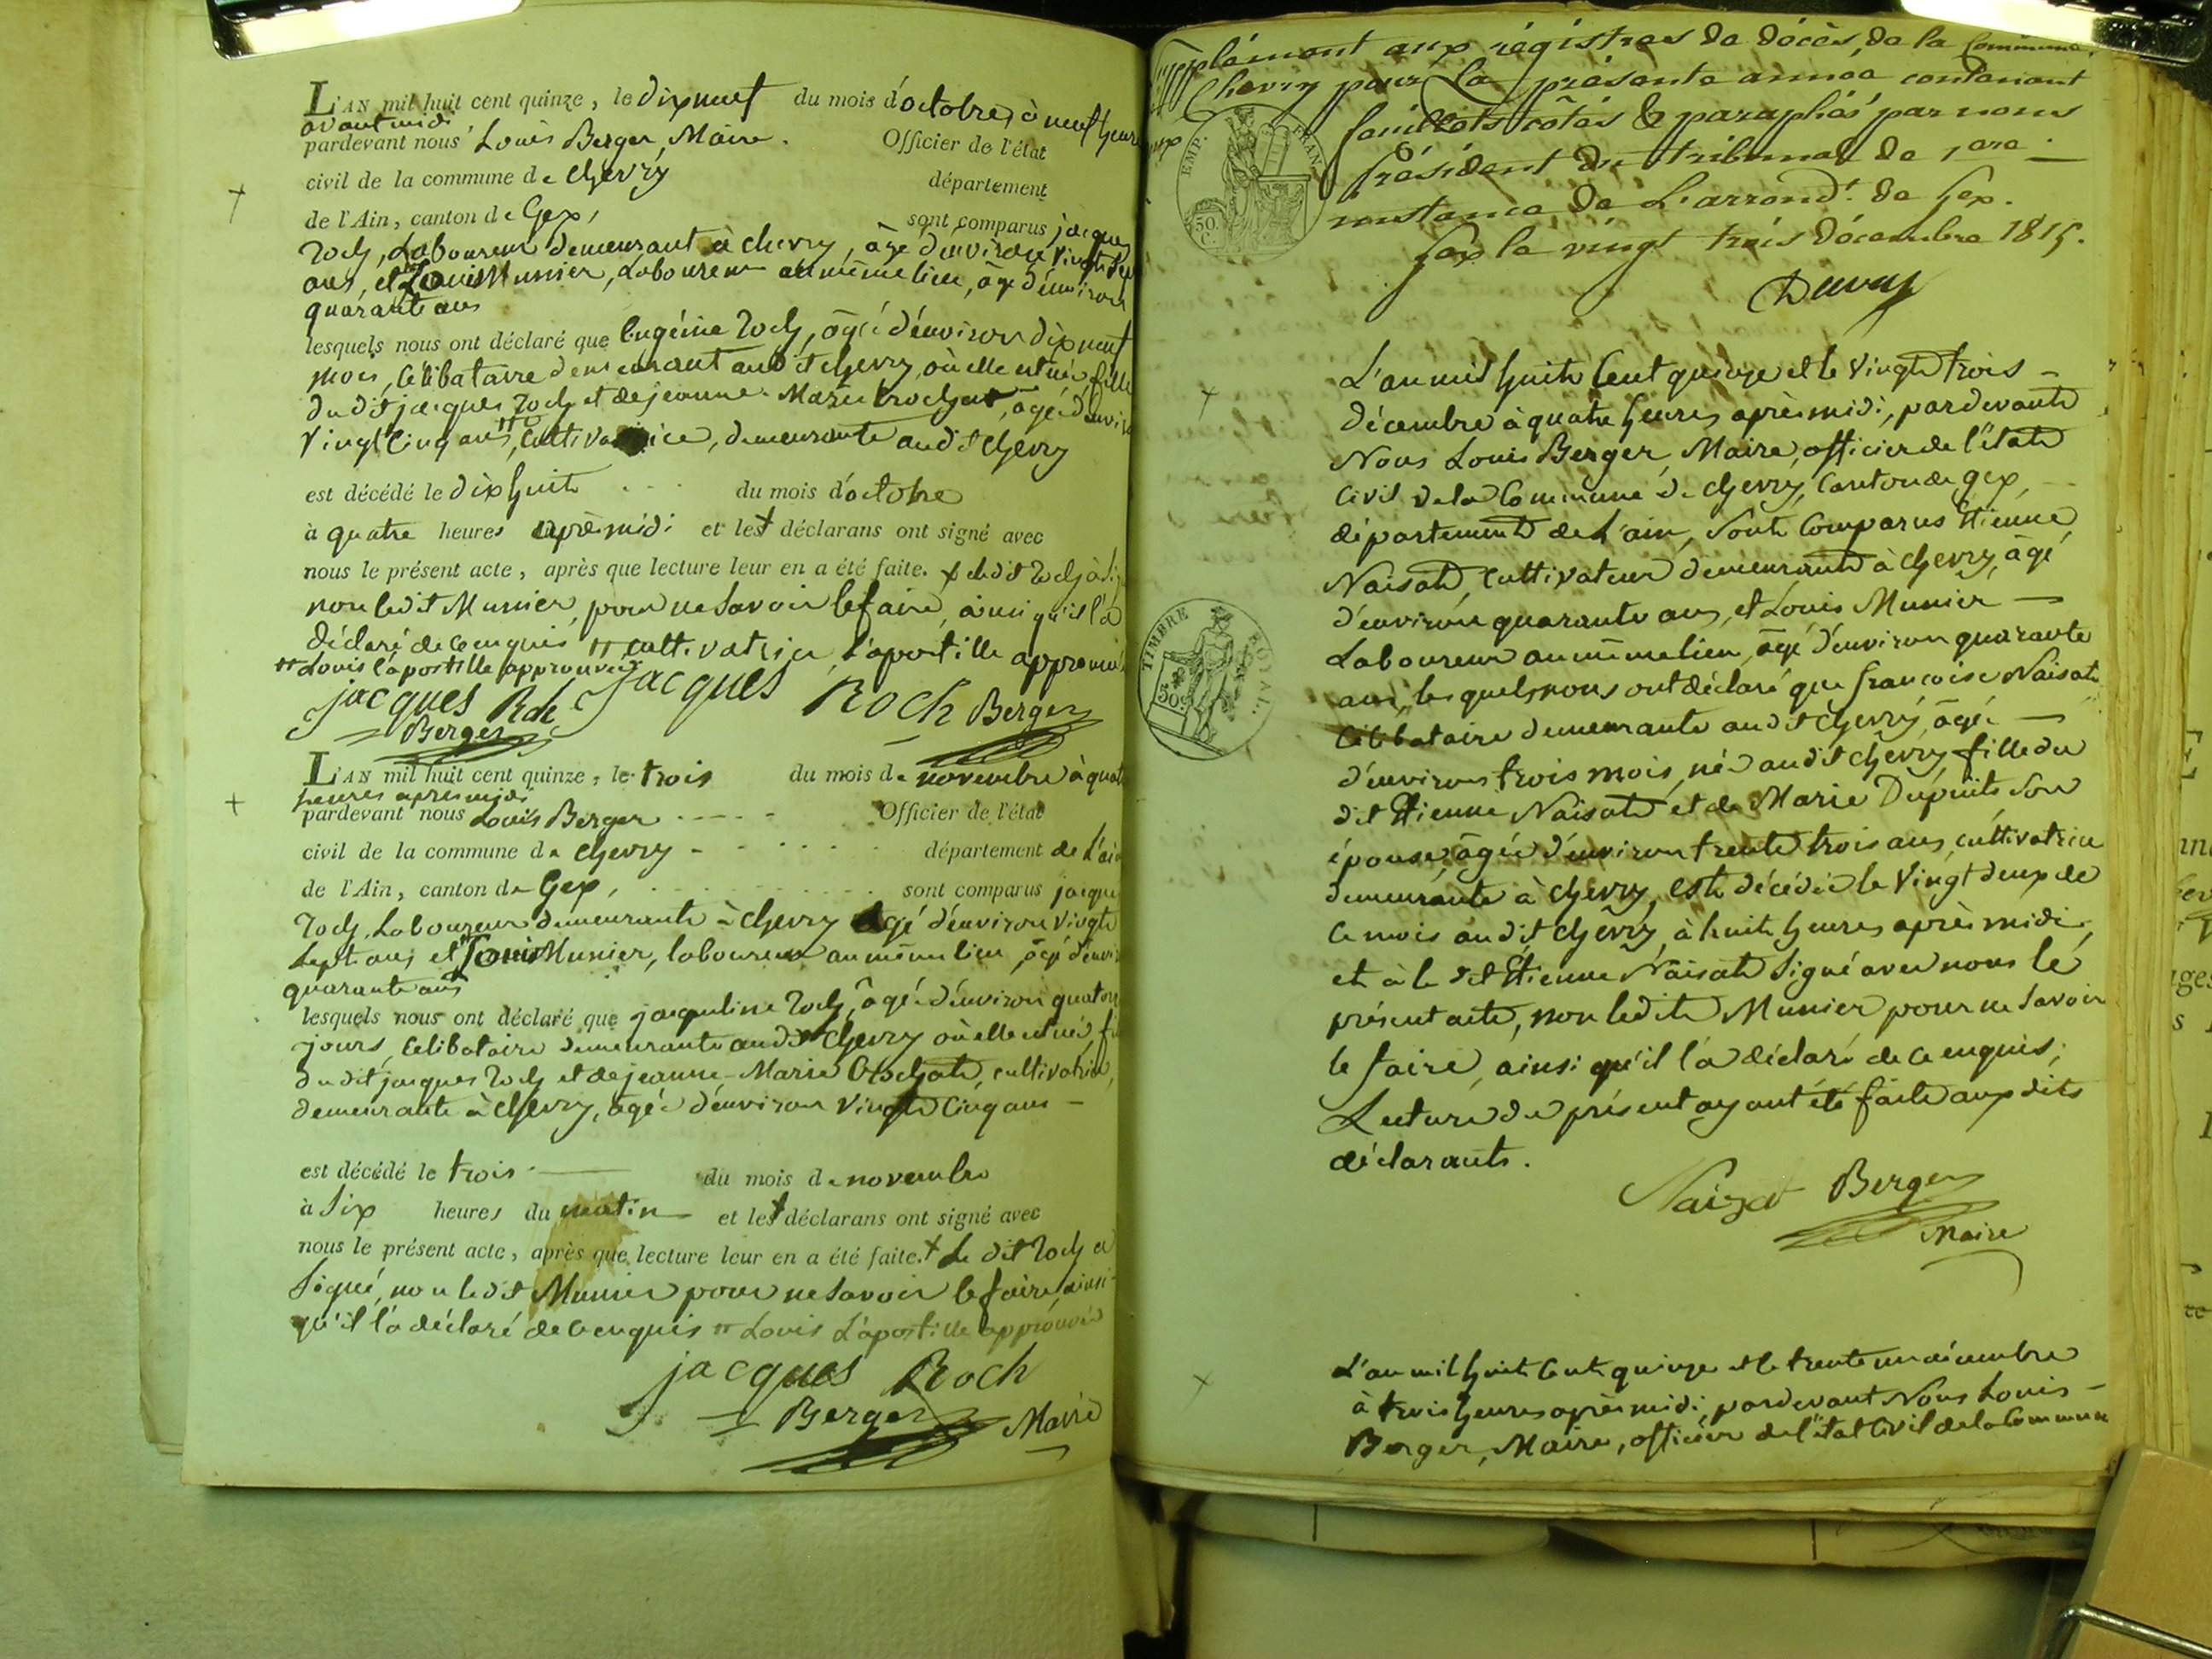 L'AN mil huit cent quinze, le dixneuf du mois d'octobre, à neuf heures
avant midi
pardevant nous Louis Berger, Maire. Officier de l'état
civil de la commune de chevry département
de l'Ain, canton de Gex, sont comparus jacques
Roch, Laboureur demeurant à chevry, âgé d'environ vingt sept
ans, et Louis Munier, Laboureur au même lieu, âgé d'environ
quarante ans
lesquels nous ont déclaré que Eugénie Roch, âgée d'environ dix neuf
mois, célibataire demeurant audit chevry, où elle est née, fille
du dit jacques Roch et de jeanne Marie Brochat, âgée d'environ
vingt cinq ans, cultivatrice, demeurante audit chevry
est décédé le dix huit du mois d'octobre
à quatre heures après midi et les † déclarans ont signé avec
nous le présent acte, après que lecture leur en a été faite. † ledit Roch à signé
non ledit Munier, pour ne savoir le faire, ainsi qu'il l'a
déclaré de ce enquis # cultivatrice, l'apostille approuvée
# Louis l'apostille approuvée
jacques Roch jacques Roch Berger
Berger
L'AN mil huit cent quinze, le trois du mois de novembre à quatre
heures après midi
pardevant nous Louis Berger Officier de l'état
civil de la commune de chevry département de L'ain
de l'Ain, canton de Gex, sont comparus jacques
Roch, Laboureur demeurante à chevry âgé d'environ vingt
sept ans, et Louis Munier, laboureur au même lieu, âgé d'environ
quarante ans
lesquels nous ont déclaré que jacqueline Roch, âgée d'environ quatorze
jours, célibataire demeurante audit chevry où elle est née, fille
du dit jacques Roch et de jeanne Marie Brochat, cultivatrice,
demeurante à chevry, âgée d'environ vingt cinq ans
est décédé le trois du mois de novembre
à six heures du matin et les † déclarans ont signé avec
nous le présent acte, après que lecture leur en a été faite. † Le dit Roch a
signé, non ledit Munier pour ne savoir le faire, ainsi
qu'il l'a déclaré de ce enquis # Louis L'apostille approuvée
jacques Roch
Berger Maire
Supplément aux régistres de décès, de la Commune
Chevry pour La présente année contenant
feuillets côtés & paraphés par nous
Président du tribunal de 1ere
instance de L'arrondt. de Gex.
Gex le vingt trois décembre 1815.
EMP. FRAN.
50.
C.
TIMBRE ROYAL.
L'an mil huit Cent quinze et le vingt trois
décembre à quatre heures après midi, pardevant
Nous Louis Berger, Maire, officier de l'état
civil de la Commune de chevry, Canton de gex,
département de L'ain, sont Comparus Etienne
Naisat, cultivateur demeurant à chevry, âgé
d'environ quarante ans, et Louis Munier
Laboureur au même lieu, âgé d'environ quarante
ans, lesquels nous ont déclaré que francoise Naisat
célibataire demeurante audit chevry, âgée
d'environ trois mois, née audit chevry, fille du
dit Etienne Naisat et de Marie Dupuits son
épouse, âgée d'environ trente trois ans, cultivatrice
demeurante à chevry, est décédée le vingt deux de
ce mois audit chevry, à huit heures après midi,
et à le dit Etienne Naisat signé avec nous le
présent acte, non ledit Munier pour ne savoir
le faire, ainsi qu'il l'a déclaré de ce enquis,
Lecture du présent ayant été faite aux dits
déclarants.
Naizat Berger
Maire
L'an mil huit cent quinze et le trente un décembre
à trois heures après midi, pardevant Nous Louis
Berger, Maire, officier de l'état civil de la Commune